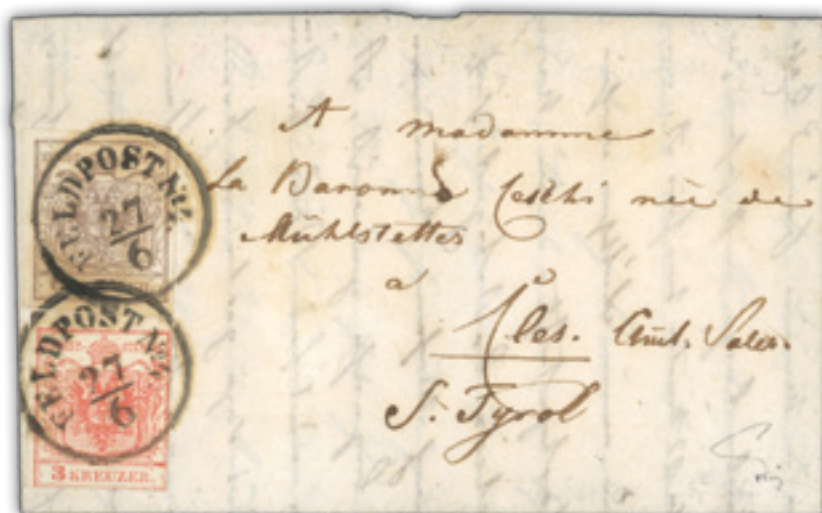 FELDPOST No
27
6
FELDPOST No
27
6
3 KREUZER.
A madamme
La Baronne Ceschi née de
Mühlstetter
a
Cles.
S. Tyrol